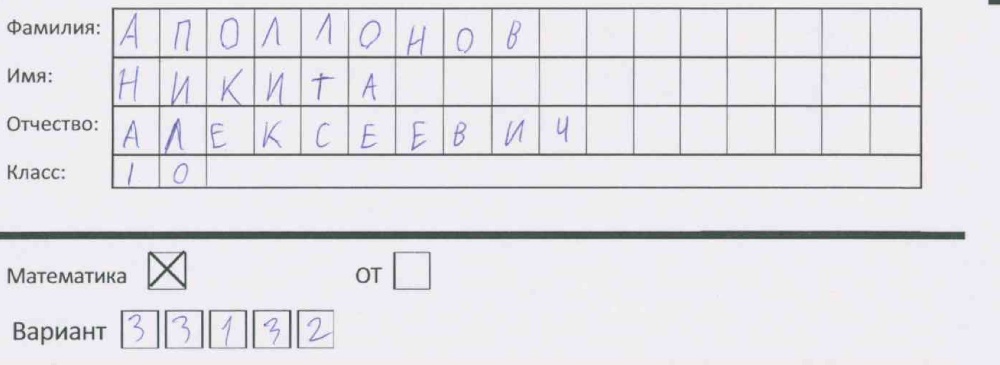 Фамилия: АПОЛЛОНОВ
Имя: НИКИТА
Отчество: АЛЕКСЕЕВИЧ
Класс: 10
Математика ☒ ОТ ☐
Вариант 33132